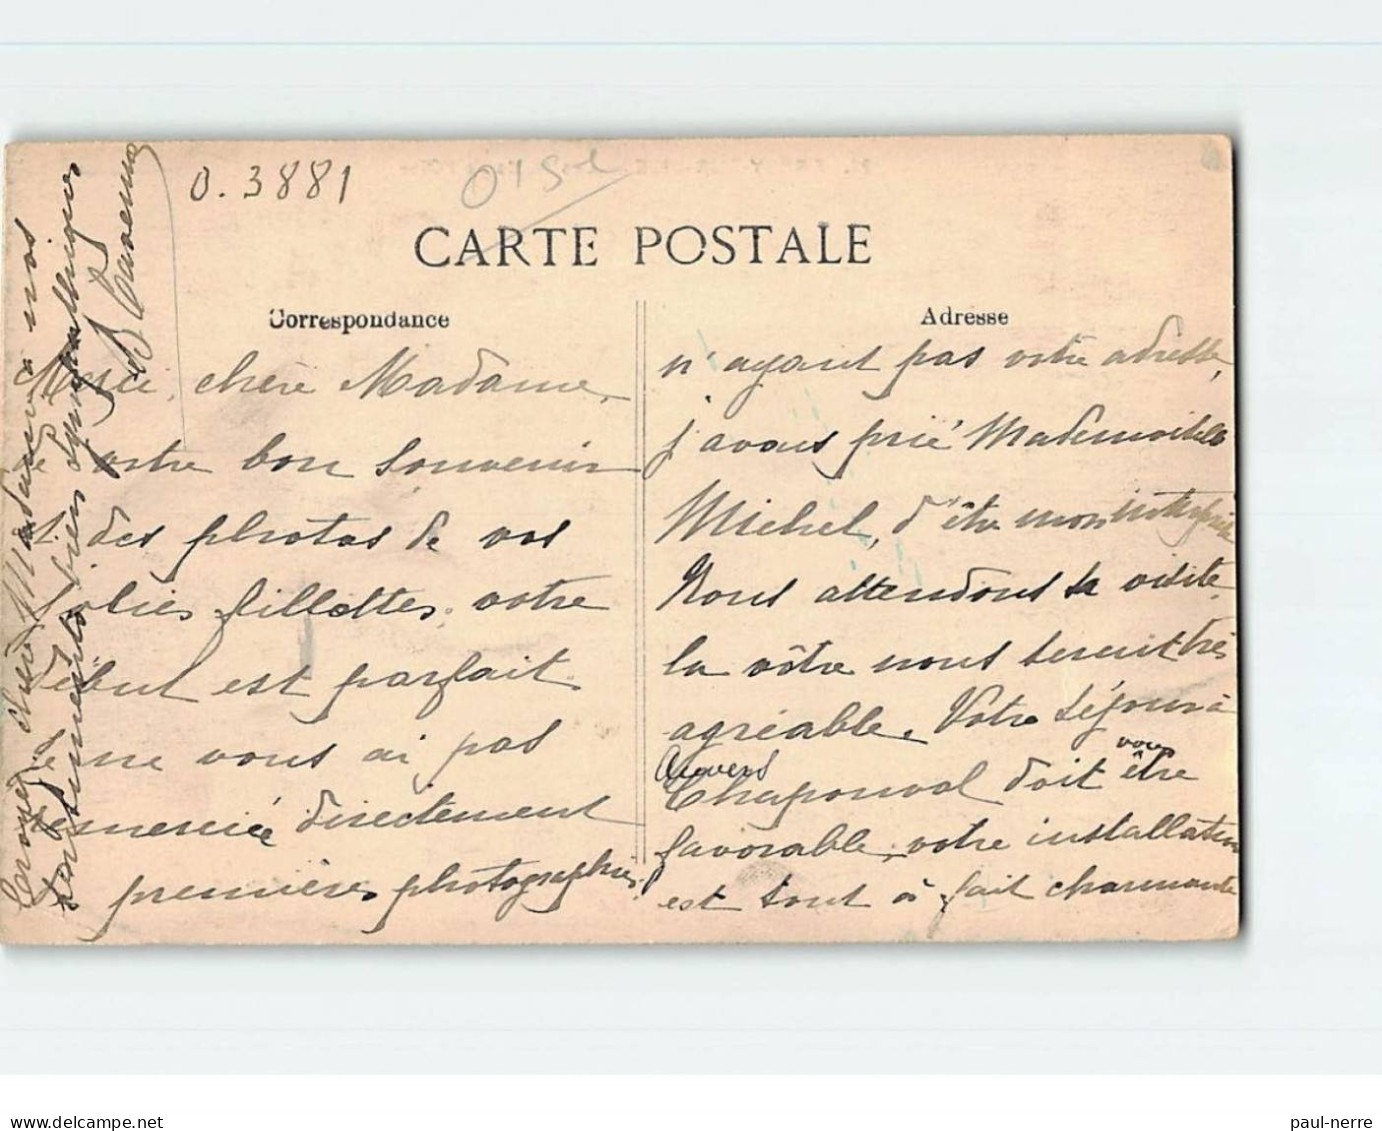 0.3881
CARTE POSTALE
Correspondance
Adresse
Merci, chère Madame,
votre bon souvenir
des photos de vos
jolies fillettes, votre
début est parfait
Je ne vous ai pas
remerciée directement
premières photographies
n'ayant pas votre adresse,
j'avais prié Mademoiselle
Michel, d'être mon interprète
Nous attendons sa visite,
la vôtre nous serait très
agréable. Votre séjour à
Auvers
Chaponval doit vous être
favorable, votre installation
est tout à fait charmante
Croyez chère Madame à mes
sentiments bien sympathiques
delcampe.net
paul-nerre